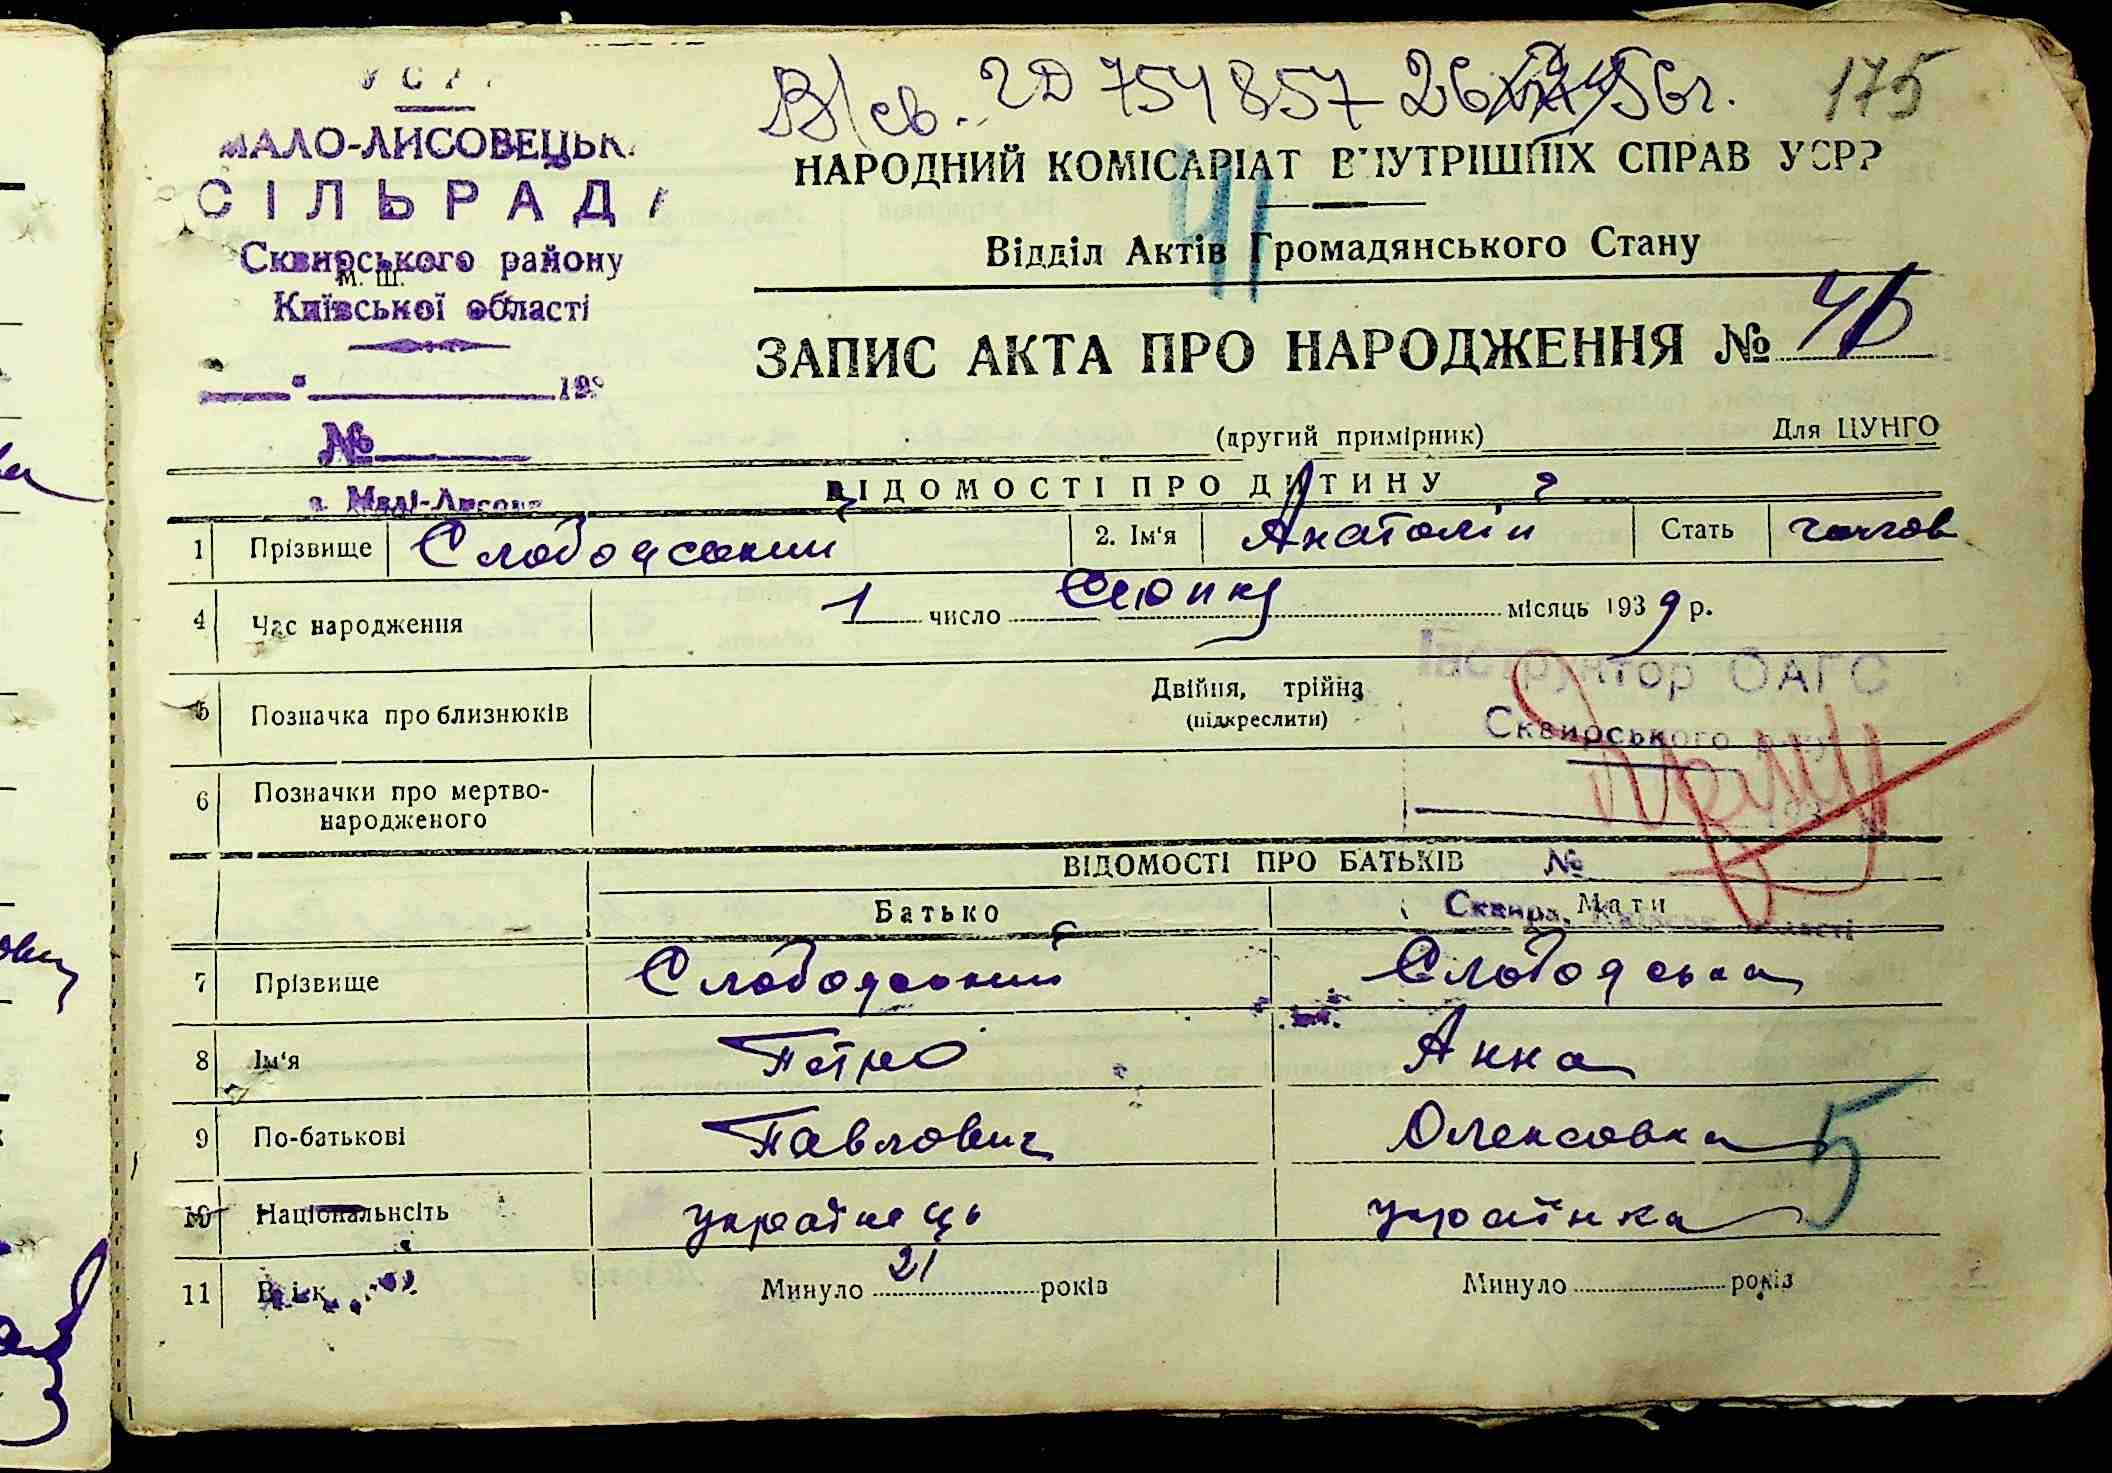 МАЛО-ЛИСОВЕЦЬК
СІЛЬРАДА
Сквирського району
М. Ш.
Київської області
193
№
В/св. 2Д 754857 26 56г.
175
НАРОДНИЙ КОМІСАРІАТ ВНУТРІШНІХ СПРАВ УСРР
41
Відділ Актів Громадянського Стану
ЗАПИС АКТА ПРО НАРОДЖЕННЯ №
(другий примірник) Для ЦУНГО
ВІДОМОСТІ ПРО ДИТИНУ
1 Прізвище Слободський 2. Ім'я Анатолій Стать чолов
4 Час народження 1 число Сюпня місяць 1939 р.
5 Позначка про близнюків Двійня, трійня
(підкреслити)
Інструктор ОАГС
Сквирського
6 Позначки про мертво-
народженого
ВІДОМОСТІ ПРО БАТЬКІВ №
Батько Мати
Сквира,
7 Прізвище Слободський Слободська
8 Ім'я Петро Анна
9 По-батькові Павлович Олексовна
5
10 Національність українець українка
11 Вік Минуло 21 років Минуло років